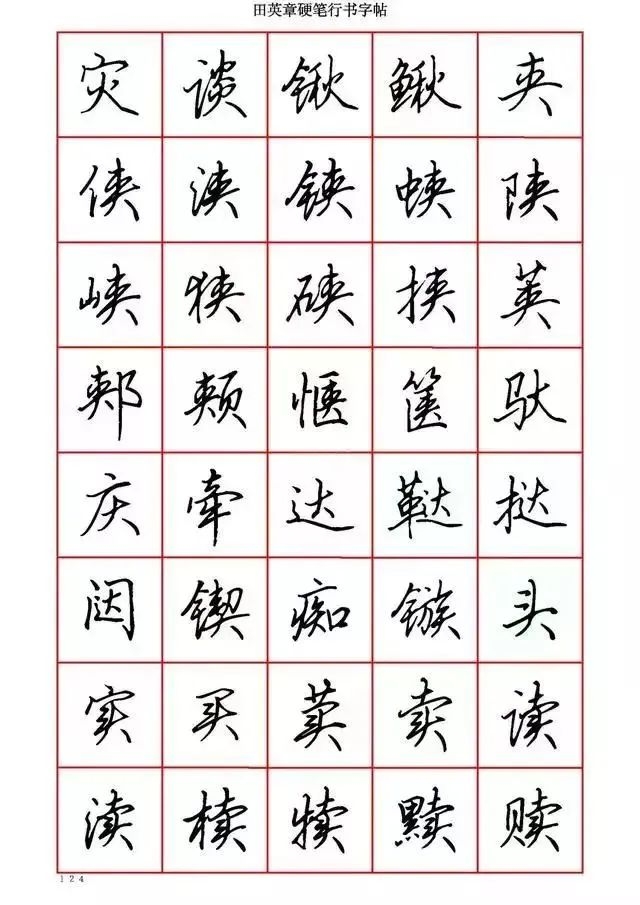 田英章硬笔行书字帖
灾 谈 锹 鳅 夹
侠 浃 铗 蛱 陕
峡 狭 硖 挟 荚
郏 颊 惬 箧 驮
庆 牵 达 鞑 挞
闼 锲 痴 镞 头
实 买 荬 卖 读
渎 椟 犊 黩 赎
124